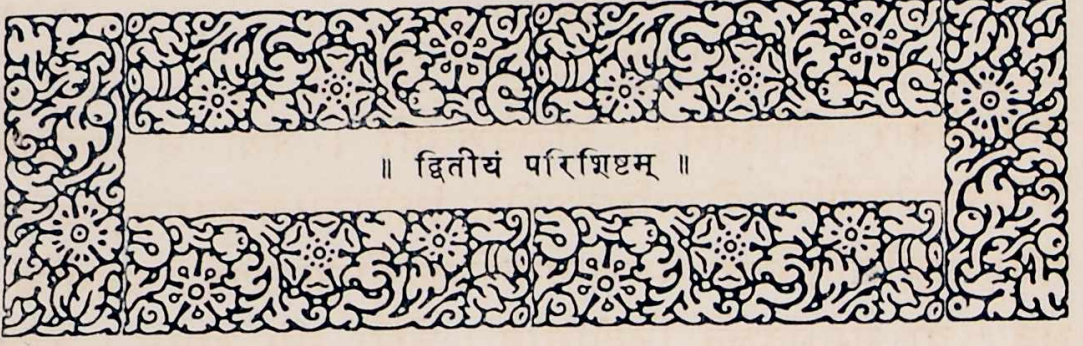 ॥ द्वितीयं परिशिष्टम् ॥